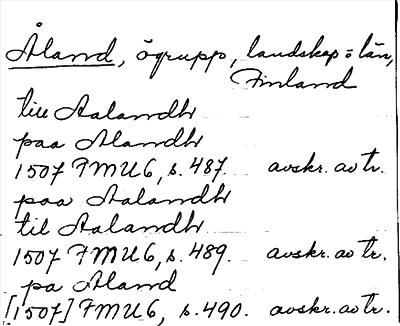 Åland, ögrupp, landskap o län,
Finland
till Aalandh
paa Alandh
1507 FMU 6, s. 487. avskr. av tr.
paa Aalandh
til Aalandh
1507 FMU 6, s. 489. avskr. av tr.
pa Åland
[1507] FMU 6, s. 490. avskr. av tr.